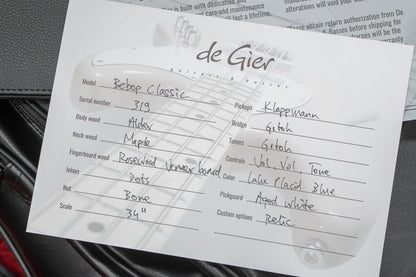 built with dedication and
care and maintenance
last a lifetime.
please obtain return authorization from De
Basses before shipping for
charges will be the
alterations will void your warranty.
de Gier
Guitars & Basses
Model Bebop Classic
Serial number 319
Body wood Alder
Neck wood Maple
Fingerboard wood Rosewood Veneer board
Inlays Dots
Nut Bone
Scale 34"
Pickups Kloppmann
Bridge Gotoh
Tuners Gotoh
Controls Vol. Vol. Tone
Color Lake Placid Blue
Pickguard Aged White
Custom options Relic